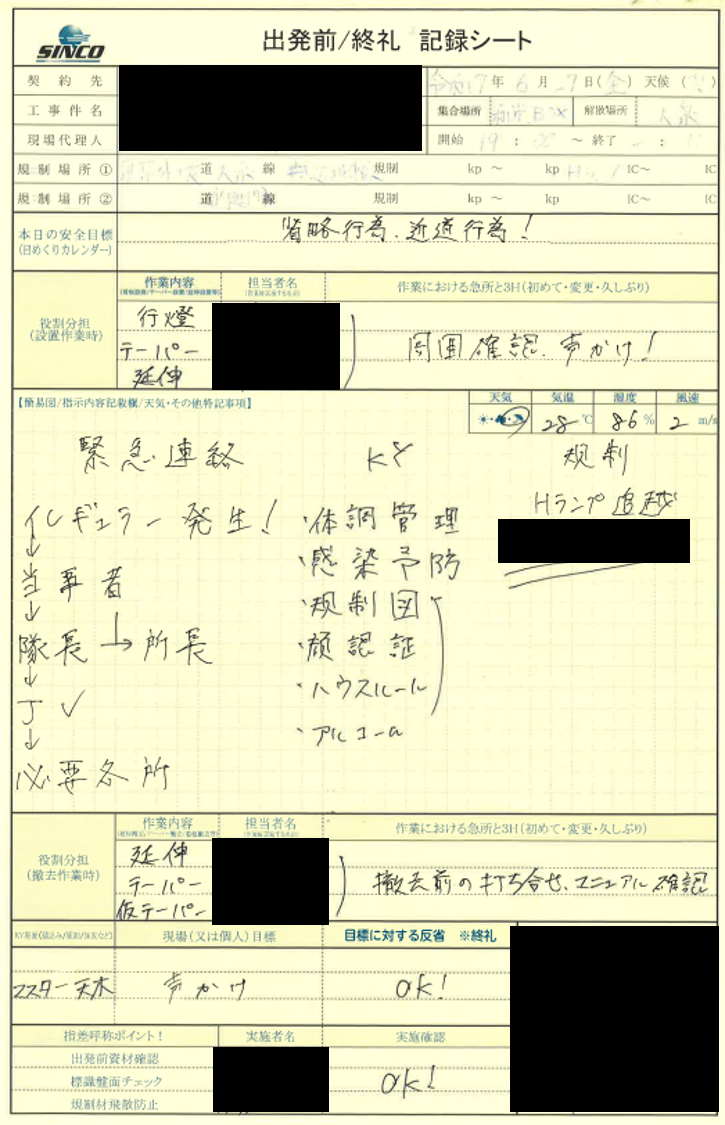 SINCO
出発前/終礼 記録シート
契約先
令和7年6月27日(金) 天候( )
工事件名
集合場所 解散場所
現場代理人
開始 19: ～ 終了 :
規制場所① 道 線 規制 kp ～ kp IC～ IC
規制場所② 道 線 規制 kp ～ kp IC～ IC
本日の安全目標
(日めくりカレンダー)
省略行為、近道行為!
役割分担
(設置作業時)
作業内容 担当者名 作業における急所と3H(初めて・変更・久しぶり)
行燈
テーパー
延伸
周囲確認、声かけ!
【簡易図/指示内容記載欄/天気・その他特記事項】
天気 気温 湿度 風速
28℃ 86% 2m/s
緊急連絡
イレギュラー発生!
↓
当事者
↓
隊長→所長
↓
JV
↓
必要各所
KY
・体調管理
・感染予防
・規制図
・顔認証
・ハウスルール
・アルコール
規制
Hランプ追越
役割分担
(撤去作業時)
作業内容 担当者名 作業における急所と3H(初めて・変更・久しぶり)
延伸
テーパー
仮テーパー
撤去前の打ち合せ、マニュアル確認
現場(又は個人)目標 目標に対する反省 ※終礼
声かけ OK!
指差呼称ポイント! 実施者名 実施確認
出発前資材確認
標識盤面チェック
規制材飛散防止
OK!